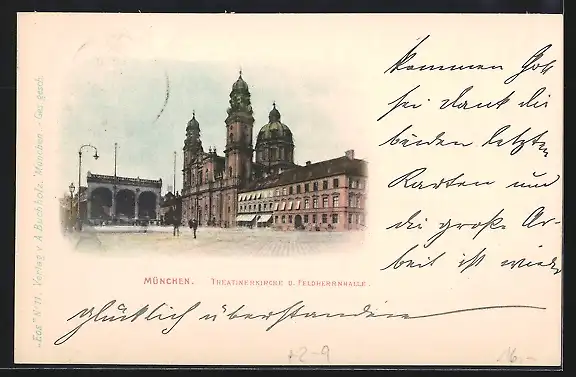 kommen Gott
sei dank die
beiden letzten
Karten und
die große Ar-
beit ist wieder
MÜNCHEN. THEATINERKIRCHE U. FELDHERRNHALLE.
glücklich überstanden
"EOS" Nº 11. Verlag v. A. Buchholz, München. Ges. gesch.
12-9
16.-